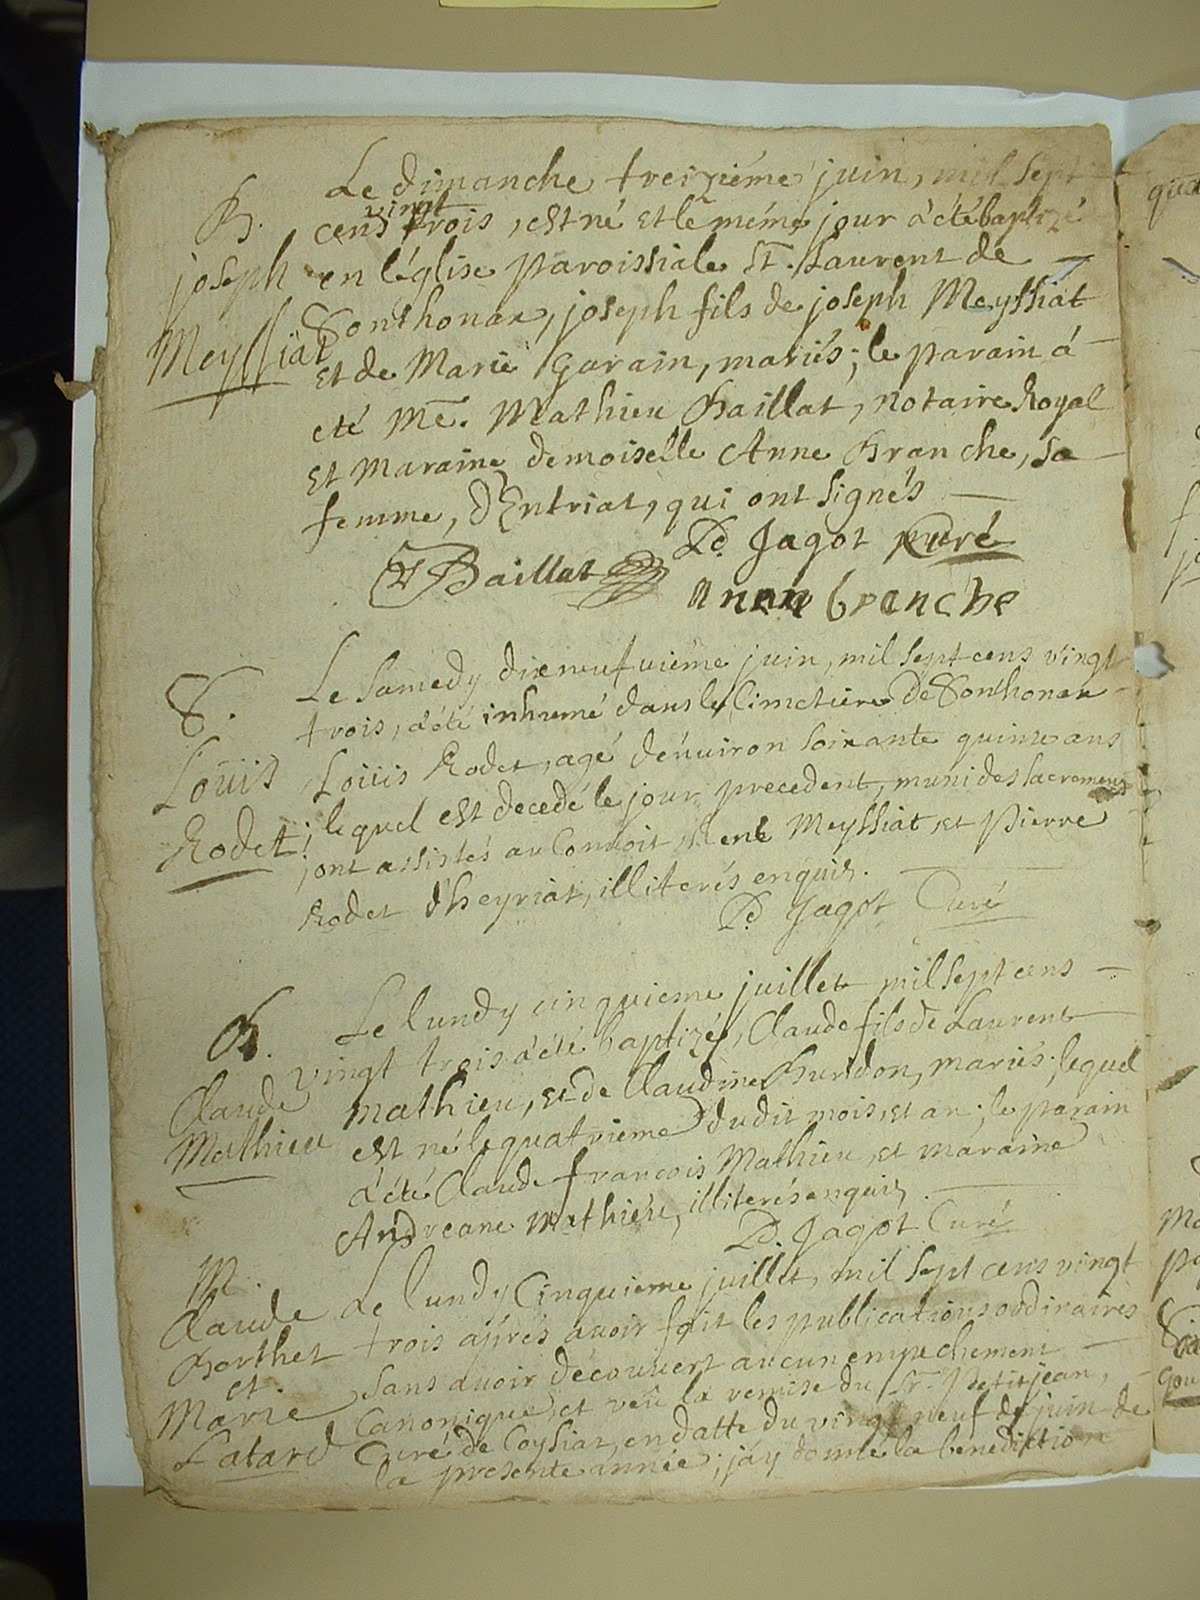 B.
joseph
Meyssiat
Le dimanche treiziéme juin, mil sept
cens vingt trois, est né et le méme jour à été baptizé
en léglise paroissiale St. Laurent de
Sonthonax, joseph fils de joseph Meyssiat
et de Marie Garain, mariés; le parain á
eté Me. Mathieu Baillat, notaire Royal
et maraine demoiselle Anne Branche, sa
femme, d'Entriat, qui ont signés
D. Jagot curé
Baillat
anne branche
S.
Loüis
Rodet
Le samedy dixneufvieme juin, mil sept cens vingt
trois, à été inhumé dans le Cimetiere de Sonthonax
Loüis Rodet, agé d'enuiron soixante quinze ans
lequel est decedé le jour precedent, muni des sacremens
; ont assistés au Conuoit, René Meyssiat, et Pierre
Rodet d'heyriat, illiterés enquis.
D. Jagot Curé
B.
Claude
Mathieu
Le lundy cinquieme juillet mil sept cens
vingt trois à été baptizé, Claude fils de Laurent
Mathieu, et de Claudine Burdon, mariés; lequel
est né le quatrieme dudit mois, et an; le parain
à été Claude françois Mathieu, et maraine
Andreane Mathieu, illiterés enquis
D. Jagot Curé
M.
Claude
Borthet
et.
Marie
Latard
Le lundy Cinquieme juillet, mil sept cens vingt
trois aprés auoir fait les publications ordinaires
, sans auoir découuert aucun empechement
Canonique, et veü la remise du Sr. Petitjean,
Curé de Coysiat, en datte du vingt neuf de juin de
la presente année; j'ay donné la benediction